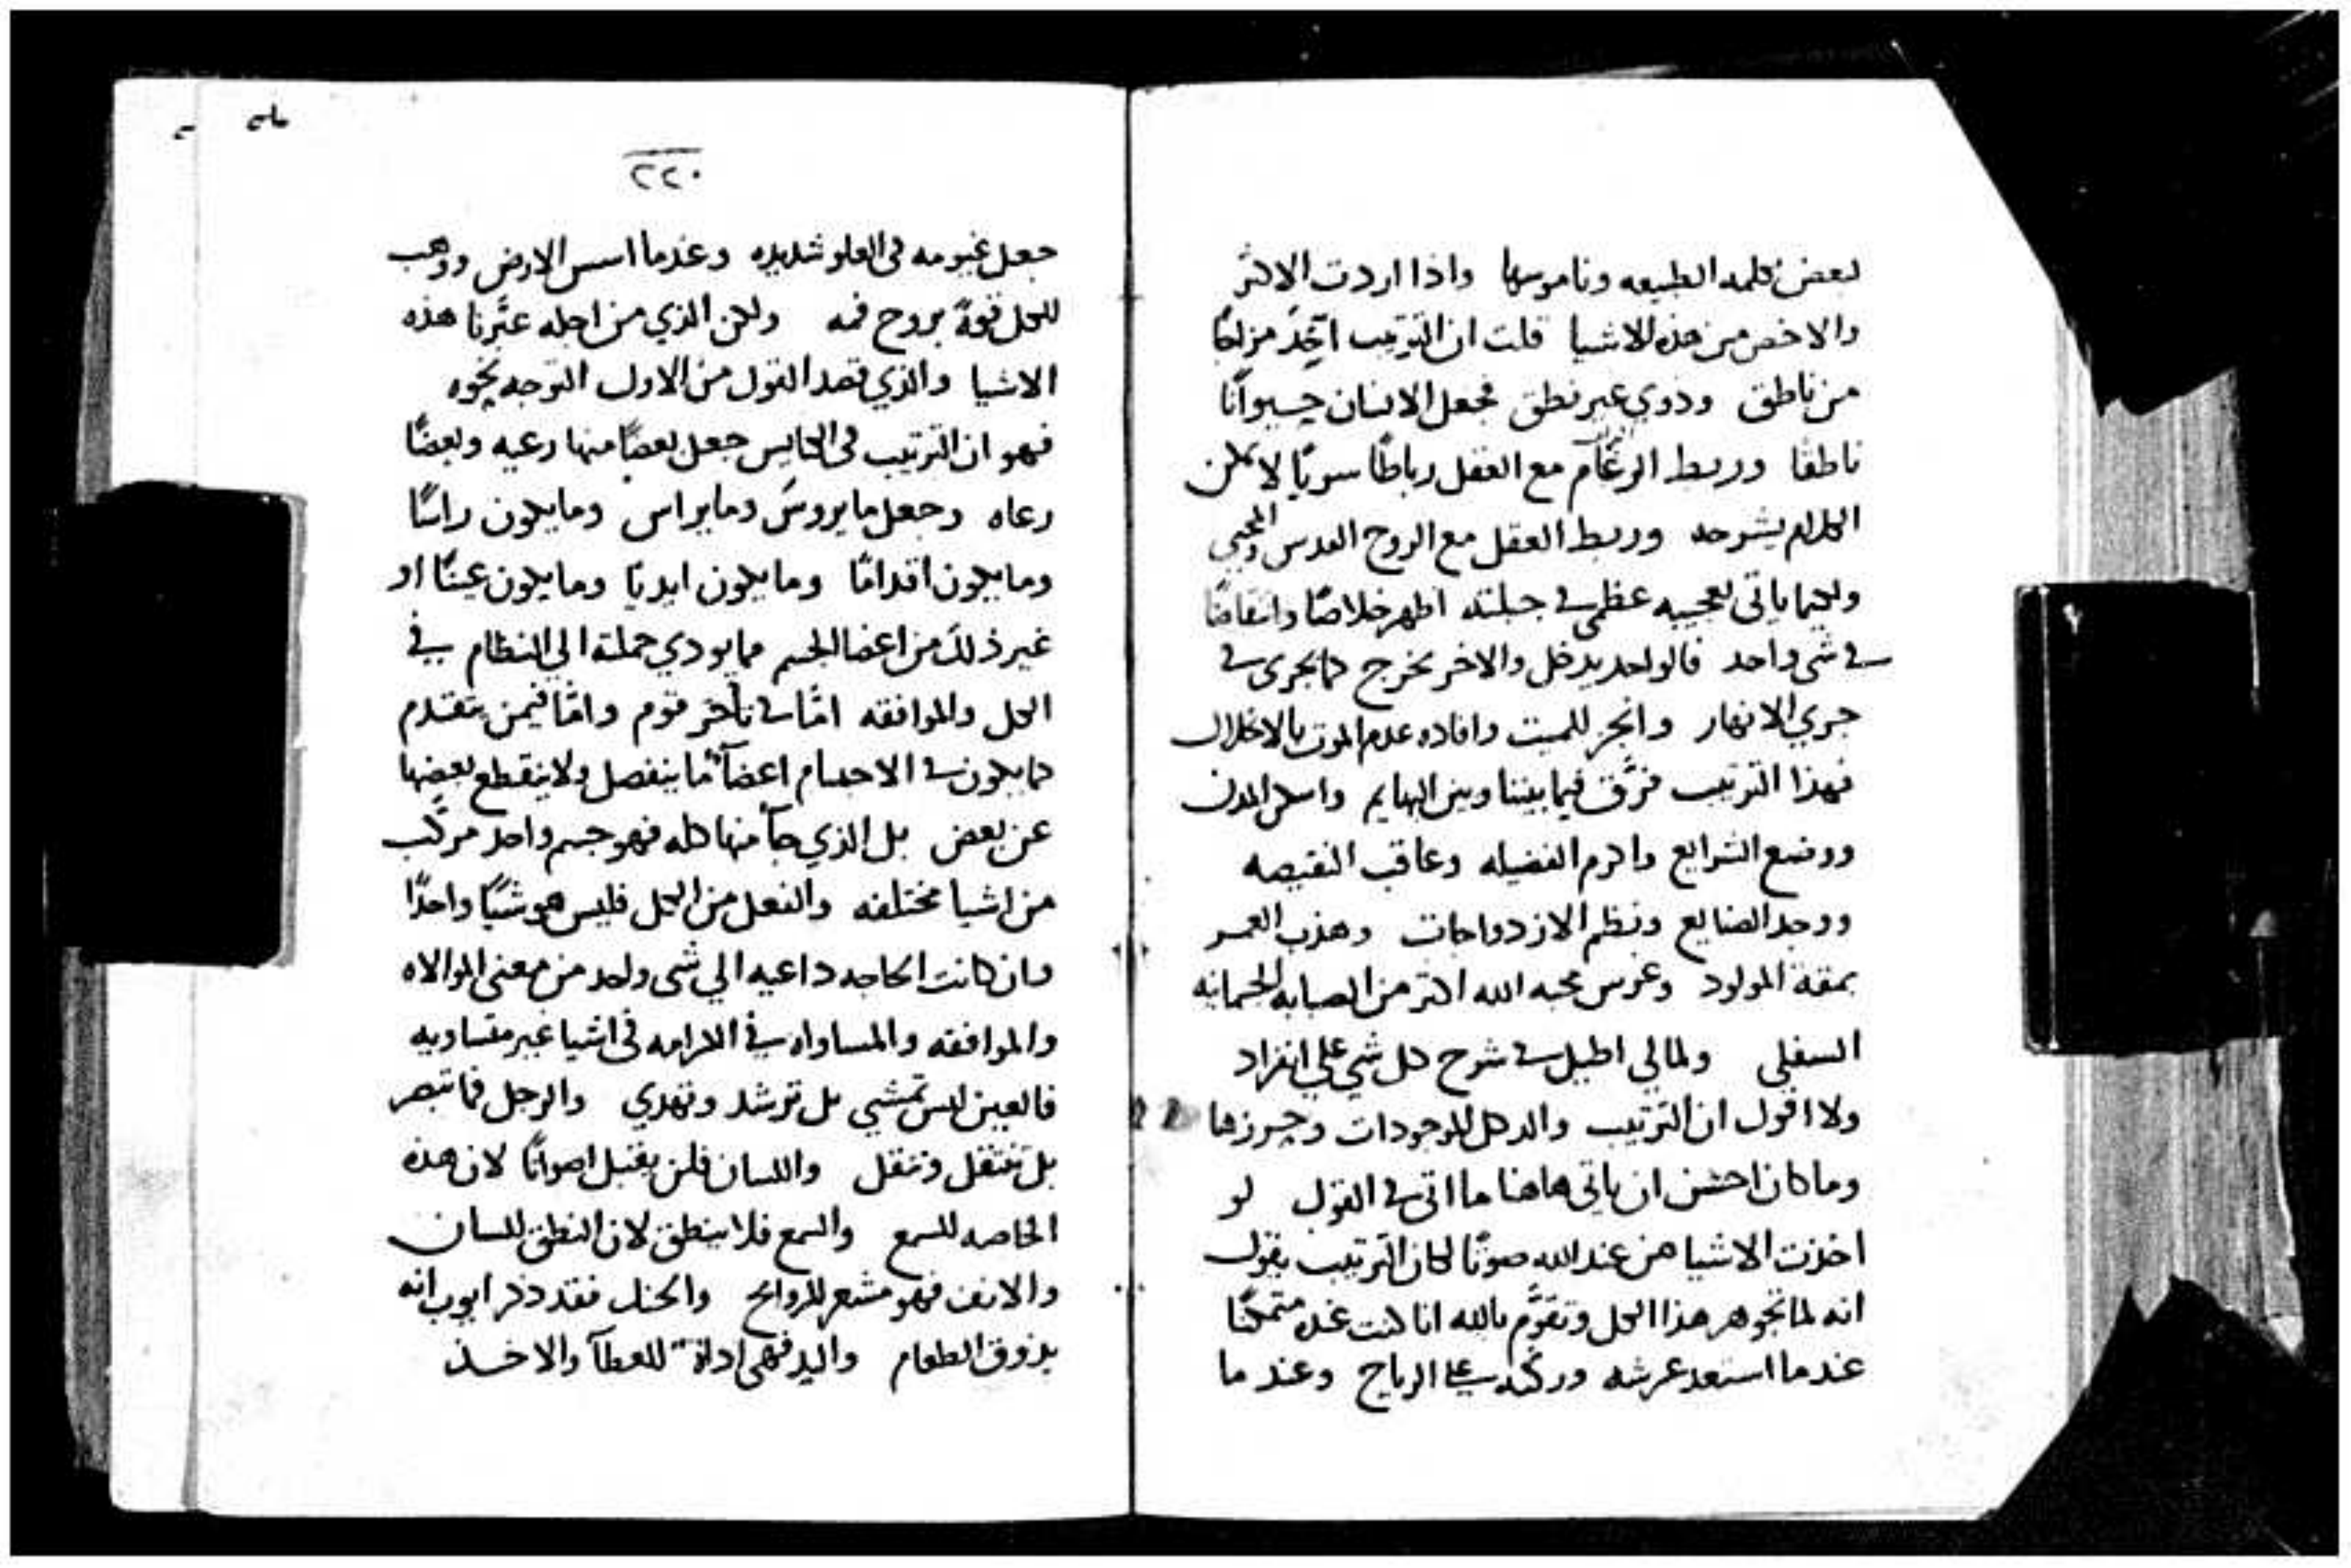 بعض كلمه الطبيعه وناموسها واذا اردت الاكثر
والاخص من هذه الاشيا قلت ان الترتيب اتخذ مزاجًا
من ناطق وذوي غير نطق فجعل الانسان حيوانًا
ناطقا وربط الرغام مع العقل رباطًا سريًا لا يمكن
الكلام يشرحه وربط العقل مع الروح القدس والمحيي
ولكيما ياتى بعجيبه عظمى في جبلته اظهر خلاصًا وانتقاضًا
في شى واحد فالواحد يدخل والاخر يخرج كما يجرى في
جري الانهار وانجز للميت وافاده عدم الموت بالانحلال
فهذا الترتيب فرَّق فيما بيننا وبين البهايم واسكن المدن
ووضع الشرايع واكرم الفضيله وعاقب النقيصه
ووجد الصنايع ونظم الازدواجات وهذب العمر
بمقة المولود وغرس محبه الله اكثر من الصبابه الجسمانيه
السفلى ولمالي اطيل في شرح كل شي علي انفراد
ولا اقول ان الترتيب والد كل الموجودات وحرزها
وما كان احسن ان ياتى هاهنا ما اتى في القول لو
اخذت الاشيا من عند الله صوتًا لكان الترتيب يقول
انه لما تجوهر هذا الكل وتقوَّم بالله انا كنت عنده متمكنًا
عندما استعد عرشه وركنه على الرياح وعند ما
٢٢٠
جعل غيومه فى العلو شديده وعندما اسس الارض ووهب
للكل قوةً بروح فمه ولكن الذي من اجله عبَّرنا هذه
الاشيا والذي قصد القول من الاول التوجه نحوه
فهو ان الترتيب فى الكنايس جعل بعضًا منها رعيه وبعضًا
رعاه وجعل ما يروسَ وما يراس وما يكون راسًا
وما يكون اقدامًا وما يكون ايديًا وما يكون عينًا او
غير ذلك من اعضا الجسم مما يودي جملته الي النظام في
الكل والموافقه امَّا في تأخر قوم وامَّا فيمن تقدم
كما يكون في الاجسام اعضآً ما ينفصل ولا ينقطع بعضها
عن بعض بل الذي جآ منها كله فهو جسم واحد مركَّب
من اشيا مختلفه والفعل من الكل فليس هو شيًا واحدًا
وان كانت الحاجه داعيه الي شى واحد من معنى الموالاه
والموافقه والمساواه في الكرامه فى اشيا غير متساويه
فالعين ليس تمشي بل ترشد وتهدي والرجل فما تبصر
بل تنتقل وتنقل واللسان فلن يقبل اصواتًا لان هذه
الخاصه للسمع والسمع فلا ينطق لان النطق للسان
والانف فهو مشعر للروايح والحنك فقد ذكر ايوب انه
يذوق الطعام واليد فهى اداة للعطآ والاخذ